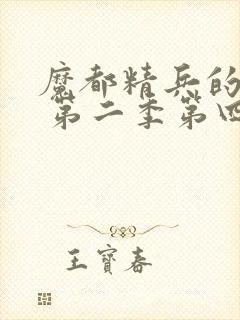 魔都精兵的
第二季第四
王寶春